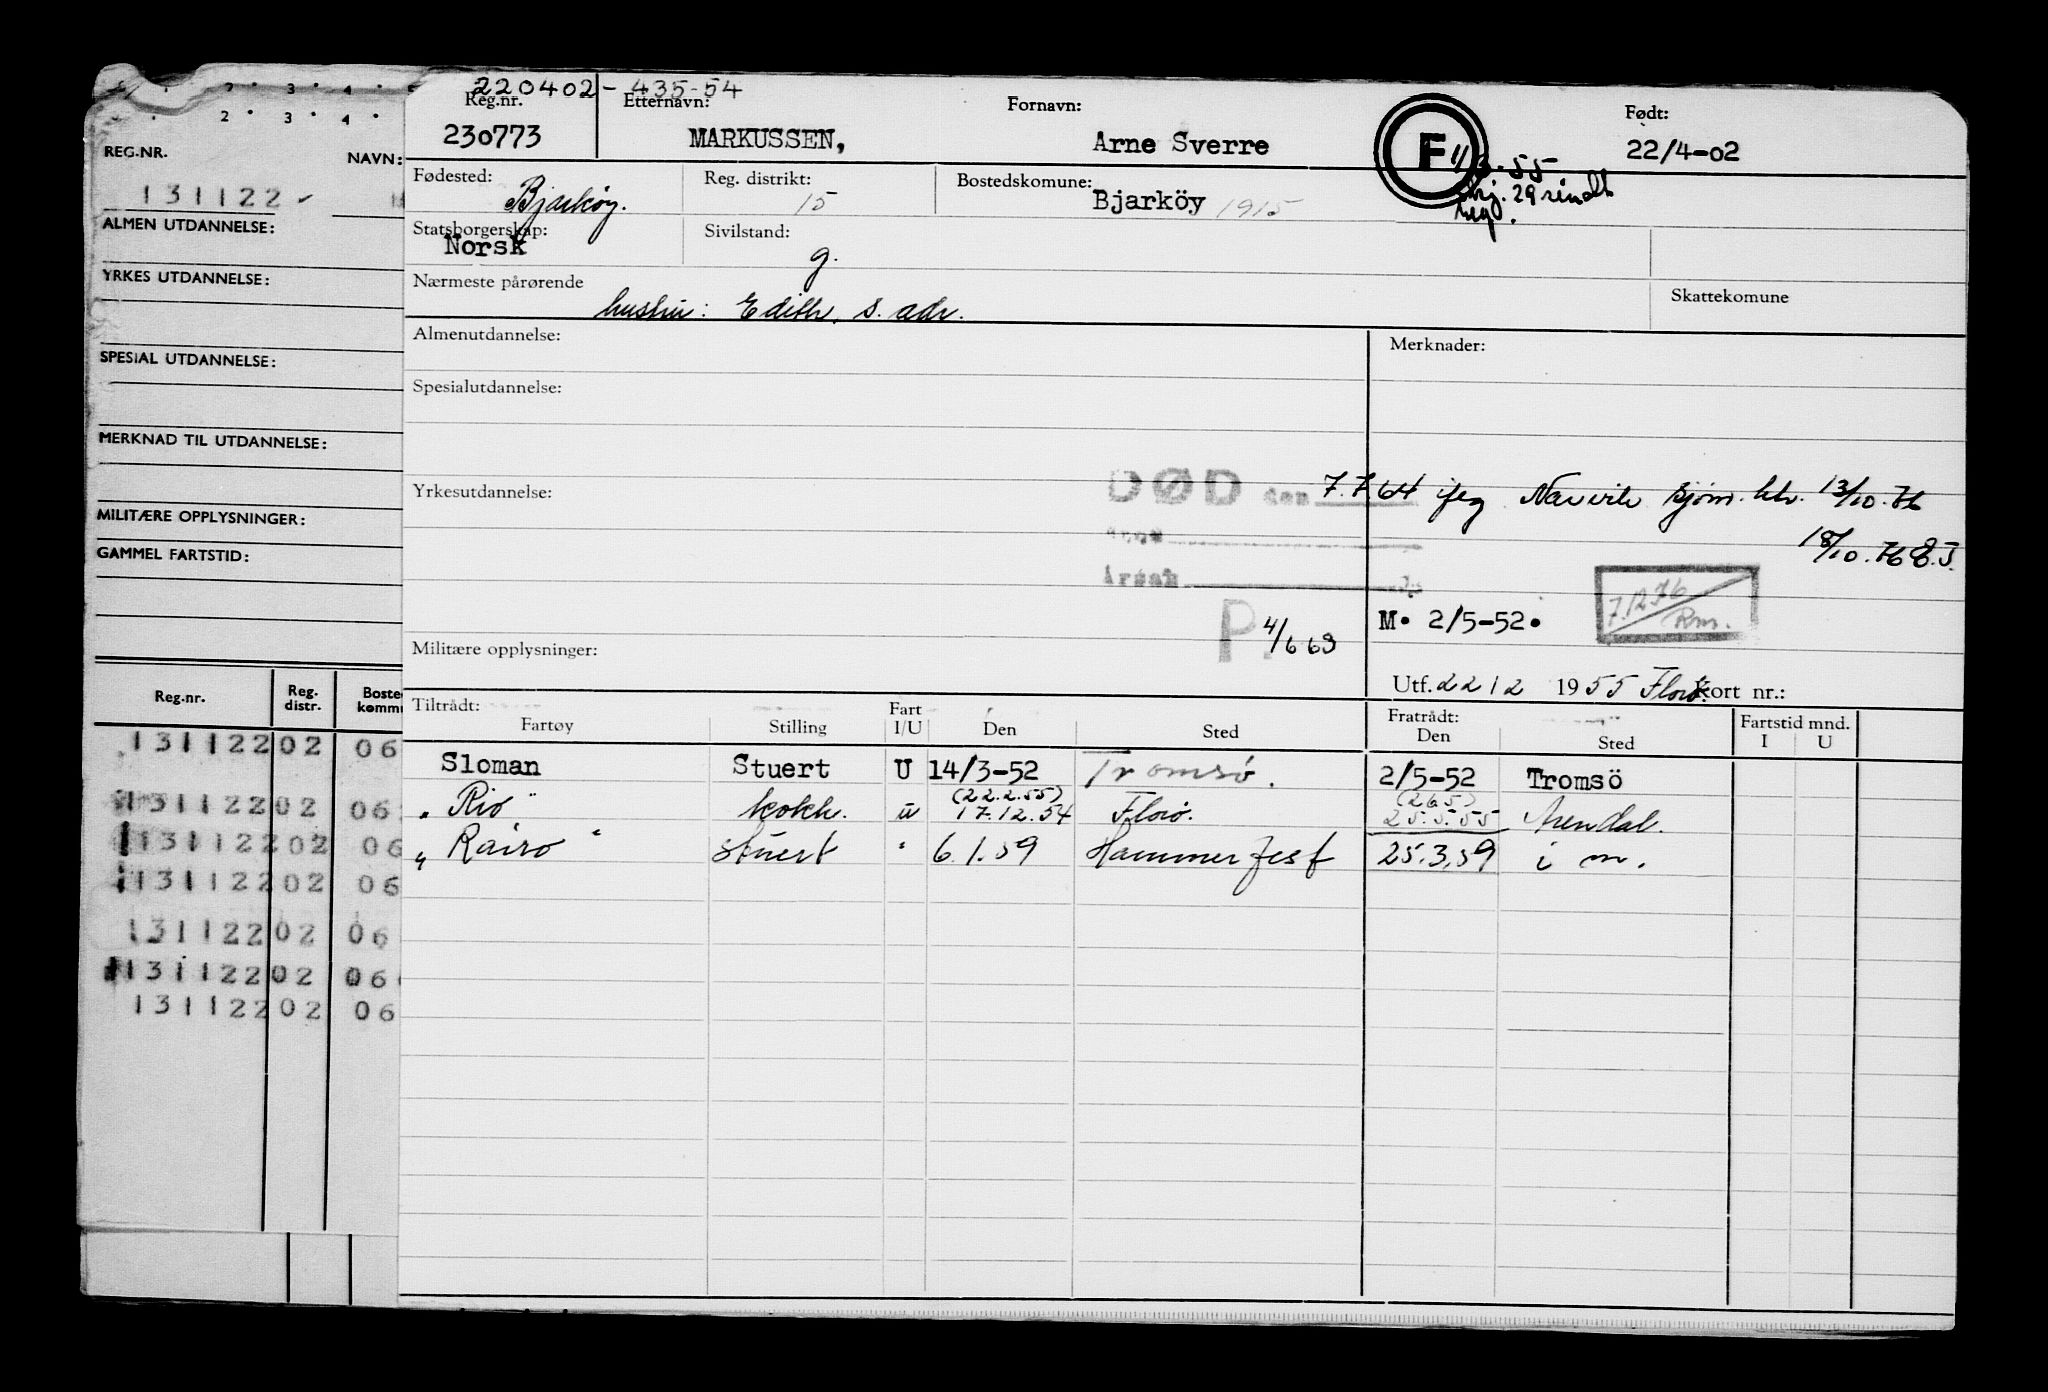 220402-435-54
Reg.nr. Etternavn: Fornavn: Født:
230773 MARKUSSEN, Arne Sverre F 22/4-02
Fødested: Reg. distrikt: Bostedskomune:
Bjarköy. 15 Bjarköy 1915
Statsborgerskap: Sivilstand:
Norsk g.
Nærmeste pårørende Skattekomune
hustru: Edith, s. adr.
Almenutdannelse: Merknader:
Spesialutdannelse:
Yrkesutdannelse: DØD den 7.7.64 13/10.76
18/10.76
Årsak
M. 2/5-52.
7.12.76
Rm.
P. 4/6 69
Militære opplysninger:
Utf. 22 12 1955 Florø Kort nr.:
Tiltrådt: Fart Fratrådt: Fartstid mnd.
Fartøy Stilling I/U Den Sted Den Sted I U
Sloman Stuert U 14/3-52 Tromsø. 2/5-52 Tromsö
(22.2.55) (26.5)
" Rio " kokk. u 17.12.54 Florø. 25.5.55 Arendal.
" Rairo " stuert " 6.1.59 Hammerfest 25.3.59 i m.
1 2 3 4
2 3 4
REG.NR. NAVN:
131122
ALMEN UTDANNELSE:
YRKES UTDANNELSE:
SPESIAL UTDANNELSE:
MERKNAD TIL UTDANNELSE:
MILITÆRE OPPLYSNINGER:
GAMMEL FARTSTID:
Reg.nr. Reg. distr. Boste kommu
131122 02 06
131122 02 06
131122 02 06
131122 02 06
131122 02 06
131122 02 06
131122 02 06